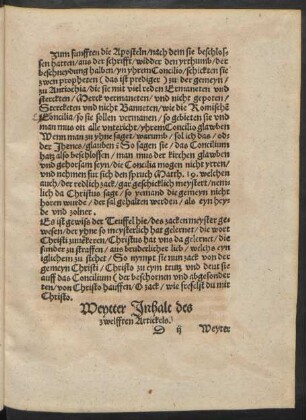 Zum funfften die Aposteln/nach dem sie beschlos-
sen hatten/aus der schrifft/widder den yrthumb/der
beschneydung halben/yn yhrem Concilio/schickten sie
zwen propheten (das ist prediger) zu der gemeyn/
zu Antiochia/die sie mit viel reden Ermaneten vnd
sterckten/Merck vermaneten/vnd nicht gepoten/
Sterckten vnd nicht Banneten/wie die Romisché
Concilia/so sie sollen vermanen/so gebieten sie vnd
man mus on alle vnterricht/yhrem Concilio glawben
Wenn man zu yhne saget/warumb/sol ich das/od-
der Jhenes/glauben: So sagen sie/das Concilium
hatz also beschlossen/man mus der kirchen glawben
vnd gehorsam seyn/die Concilia mogen nicht yrren/
vnd nehmen fur sich den spruch Matth. 19. welchen
auch/der redlich zack/gar geschicklich meystert/nem-
lich da Christus sage/so yemand die gemeyn nicht
horen wurde/der sal gehalten werden/als eyn heyde
vnd zolner.
Es ist gewis der Teuffel hie/des zacken meyster ge-
wesen/der yhne so meysterlich hat geleret/die wort
Christi zuuerkeren/Christus hat vns da geleret/die
sunder zu straffen/aus bruderlicher lieb/welchs eyn
iglichem zu stehet/So nympt sie nun zack von der
gemeyn Christi/Christo zu eym trutz vnd deut sie
auff das Concilium (der beschornen vnd abgesonder-
ten/von Christo hauffen/O zack/wie
mit
Christo.
Weytter Jnhalt des
zwelfften Artickels.
D ij Weyter